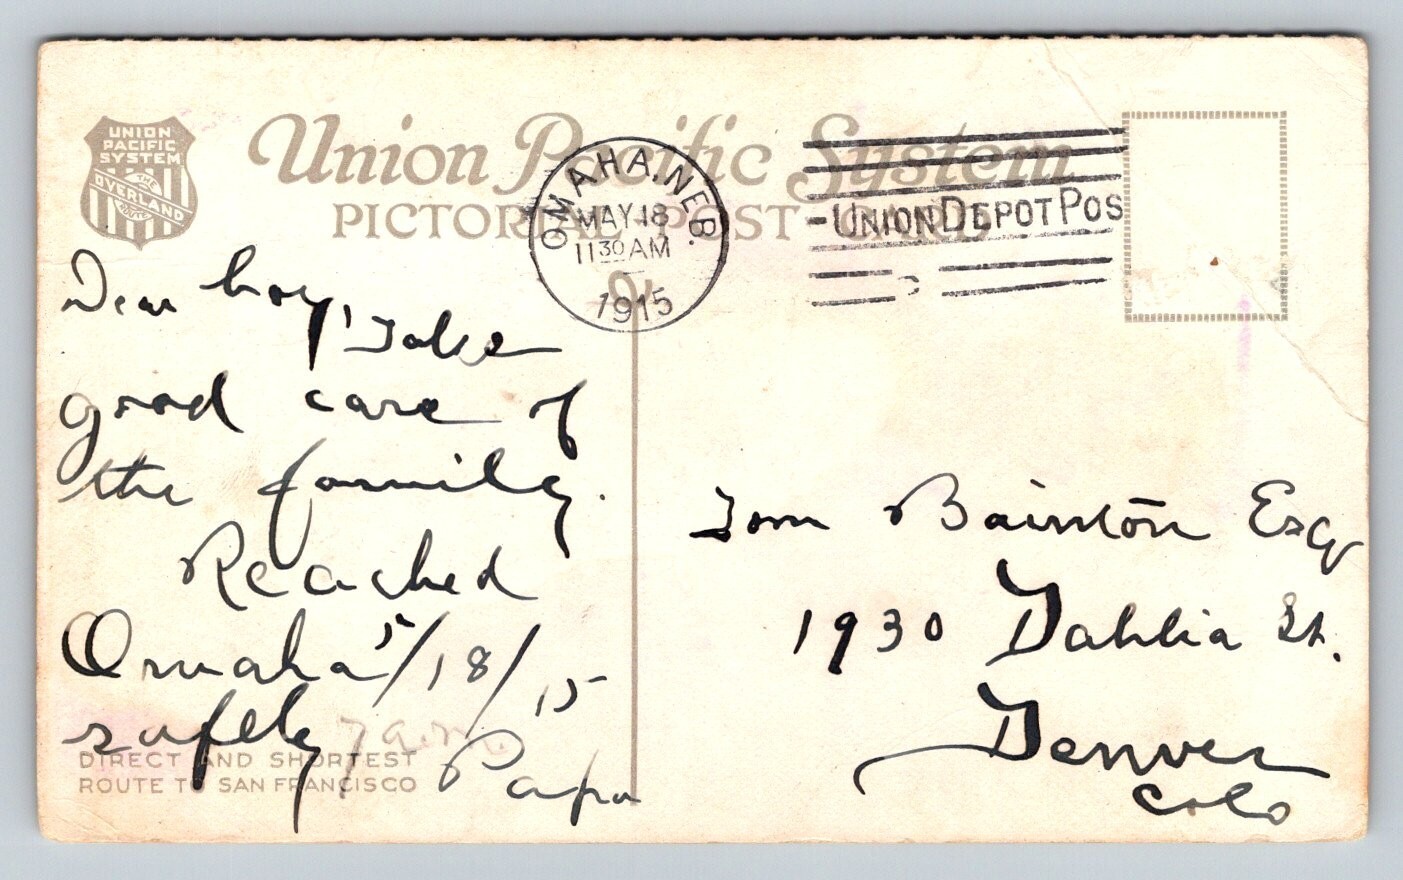 UNION
PACIFIC
SYSTEM
THE
OVERLAND
ROUTE
Union Pacific System
PICTORIAL POST CARD
OMAHA, NEB.
MAY 18
11 30 AM
1915
UNION DEPOT POS
Dear boy, Take
good care of
the family.
Reached
Omaha 5/18/15
safely 7 a.m.
Papa
DIRECT AND SHORTEST
ROUTE TO SAN FRANCISCO
Tom Bainton Esq
1930 Dahlia St.
Denver
Colo